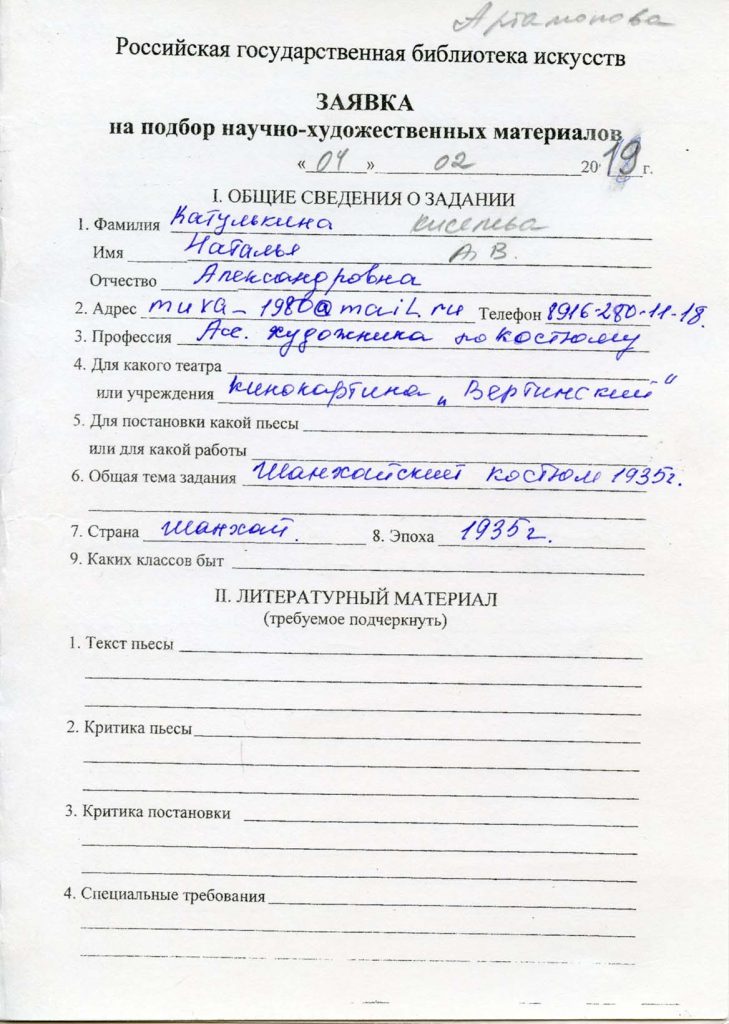 Артамонова
Российская государственная библиотека искусств
ЗАЯВКА
на подбор научно-художественных материалов
«04» 02 2019 г.
I. ОБЩИЕ СВЕДЕНИЯ О ЗАДАНИИ
1. Фамилия Катулькина Киселева
Имя Наталья А. В.
Отчество Александровна
2. Адрес muxa_1980@mail.ru Телефон 8916-280-11-18.
3. Профессия Асс. художника по костюму
4. Для какого театра
или учреждения кинокартина „Вертинский"
5. Для постановки какой пьесы
или для какой работы
6. Общая тема задания Шанхайский костюм 1935г.
7. Страна Шанхай. 8. Эпоха 1935г.
9. Каких классов быт
II. ЛИТЕРАТУРНЫЙ МАТЕРИАЛ
(требуемое подчеркнуть)
1. Текст пьесы
2. Критика пьесы
3. Критика постановки
4. Специальные требования